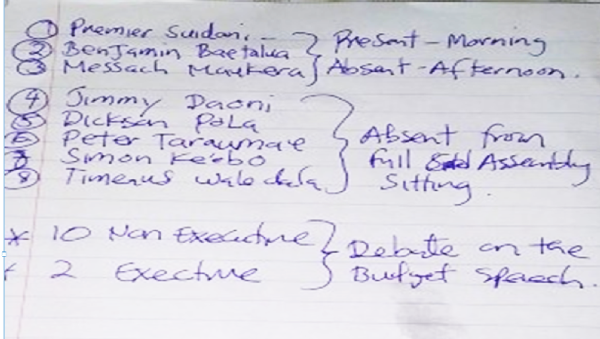 ① Premier Suidani - } Present - Morning
② Benjamin Baetalua
③ Messach Maekera } Absent - Afternoon.
④ Jimmy Daoni
⑤ Dickson Pola
⑥ Peter Taraumae } Absent from
⑦ Simon Keobo full Assembly
⑧ Timenus Waledala Sitting.
* 10 Non Executive } Debate on the
* 2 Executive Budget Speech.